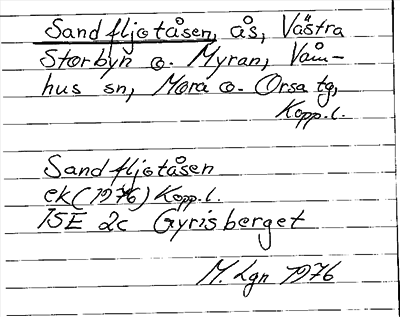 Sandfljotåsen, ås, Västra
Storbyn o. Myran, Våm-
hus sn, Mora o. Orsa tg,
Kopp.l.
Sandfljotåsen
ek (1976) Kopp.l.
15E 2c Gyrisberget
M. Lgn 1976